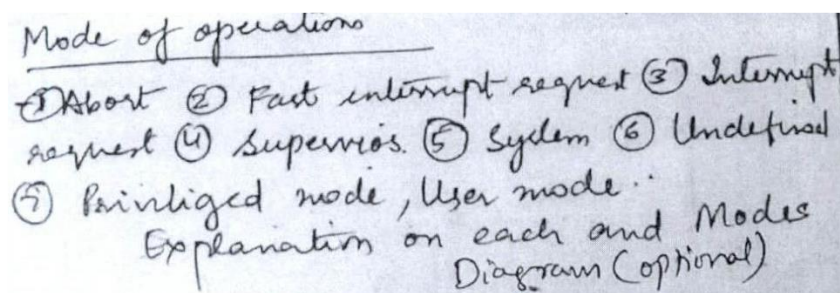 Mode of operations
① Abort ② Fast interrupt request ③ Interrupt
request ④ Supervios. ⑤ System ⑥ Undefined
⑦ Privliged mode, User mode..
Explanation on each and Modes
Diagram (optional)